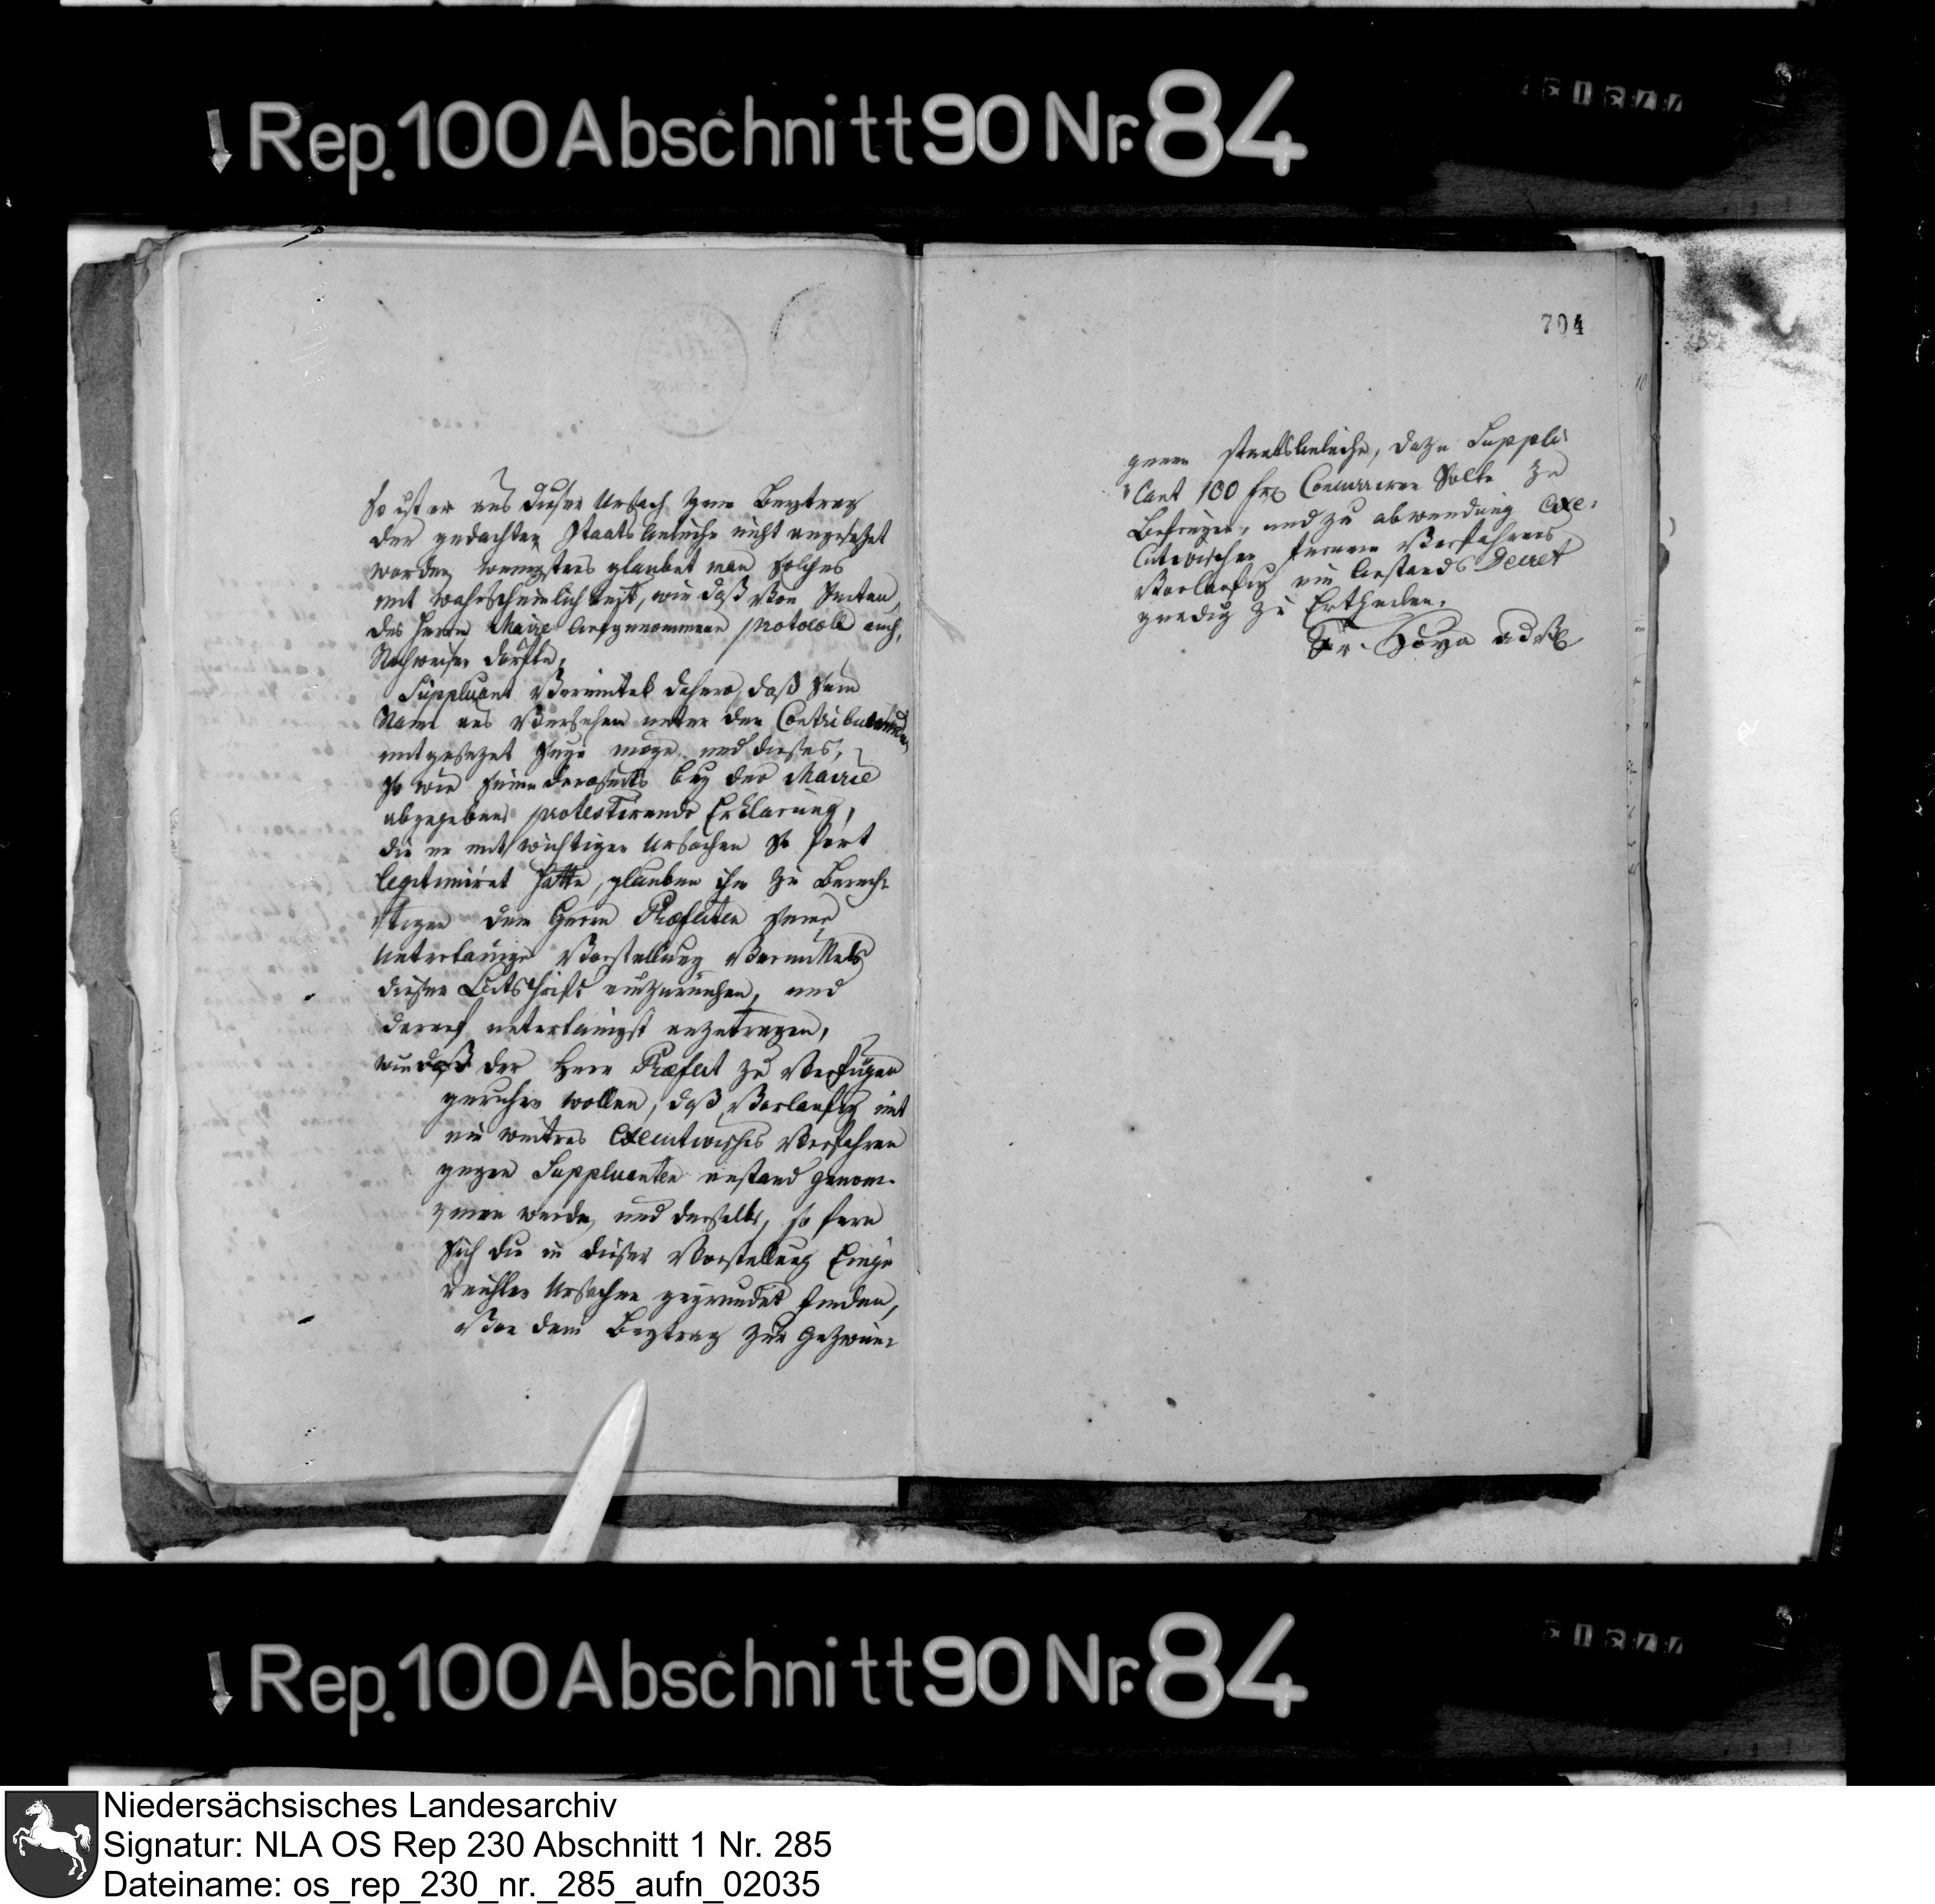 Rep. 100 Abschnitt 90 Nr. 84
so ist er aus dieser Ursach zum Beytrag
der gedachten Staats Anleihe nicht angesetzet
worden, wenigstens glaubet man solches
mit wahrscheinlichkeit, wie daß von Seiten
des Herrn Maire aufgenommene protocoll auch
Nachweisen dörfte,
Supplicant vermutet dahero, daß sein
Name aus Versehen unter den Contribuirenden
mit gesezet seyn möge und dieses,
so wie seine derseits bey der Mairie
abgegebene protestirende Erklarung,
die er mit wichtigen Ursachen so fort
legitimiret hatte, glauben ihn zu Berech-
tigen dem Herrn Præfecten seine
Unterthänige Vorstellung vermittels
dieser Bitschrift einzureichen, und
darauf unterthänigst anzutragen,
wie daß der Herr Præfect zu verfügen
geruhen wollen, daß vorlaufig mit
ein weitres executivisches Verfahren
gegen Supplicanten anstand genom-
men werde, und derselbe, so fern
sich die in dieser Vorstellung Einge
reichten Ursachen gegrundet finden,
von dem Beytrag zur Gezwun-
704
genen Staats Anleihe, dazu Suppli-
cant 100 frs Concurriren Solte zu
Befreyen, und zu abwendung Exe-
cutivischen ferneren Verfahrens
Vorlaufig ein Anstands Decret
gnedig zu Ertheilen.
Rep. 100 Abschnitt 90 Nr. 84
Niedersächsisches Landesarchiv
Signatur: NLA OS Rep 230 Abschnitt 1 Nr. 285
Dateiname: os_rep_230_nr._285_aufn_02035